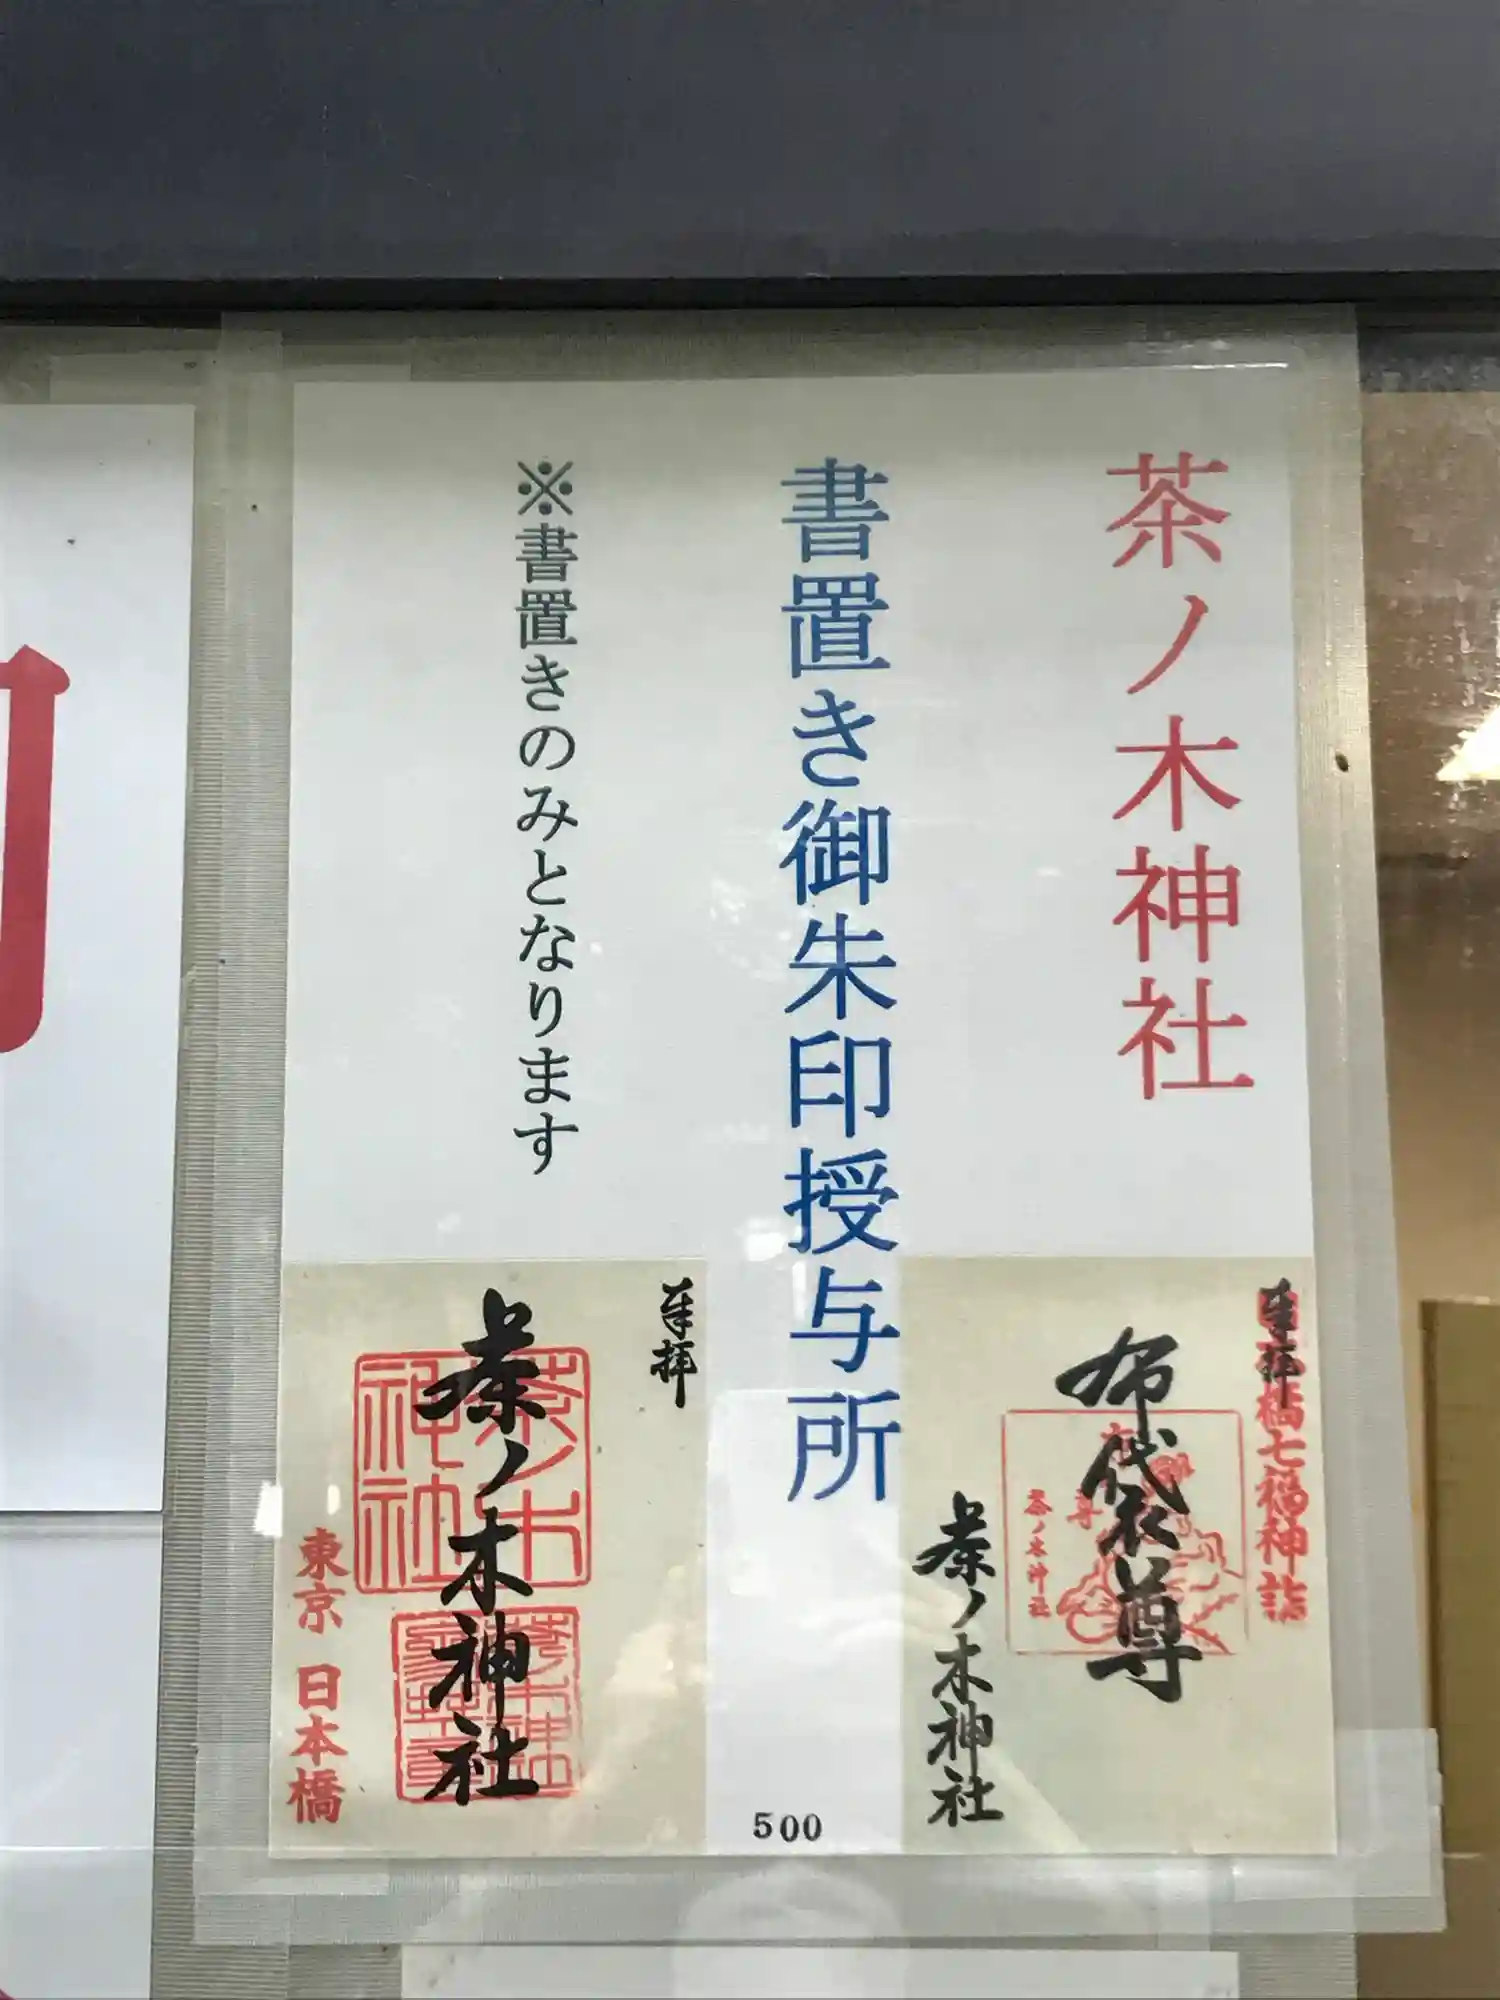 茶ノ木神社
書置き御朱印授与所
※書置きのみとなります
奉拝
橋七福神詣
布袋尊
茶ノ木神社
茶ノ木神社
500
奉拝
茶ノ木神社
茶ノ木神社
東京 日本橋